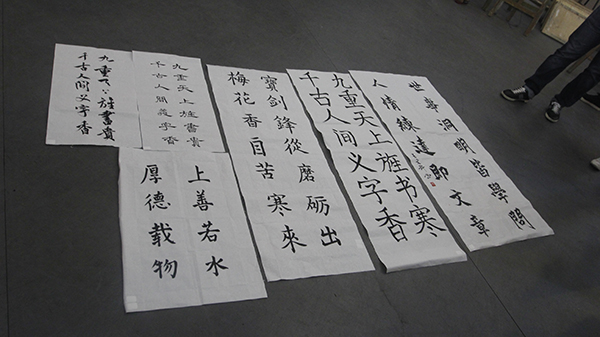 世事洞明皆學問
人情練達即文章
九重天上旌书寒
千古人间义字香
寶劍鋒從磨砺出
梅花香自苦寒來
九重天上旌書貴
千古人間義字香
九重天上旌書貴
千古人间义字香
上善若水
厚德载物